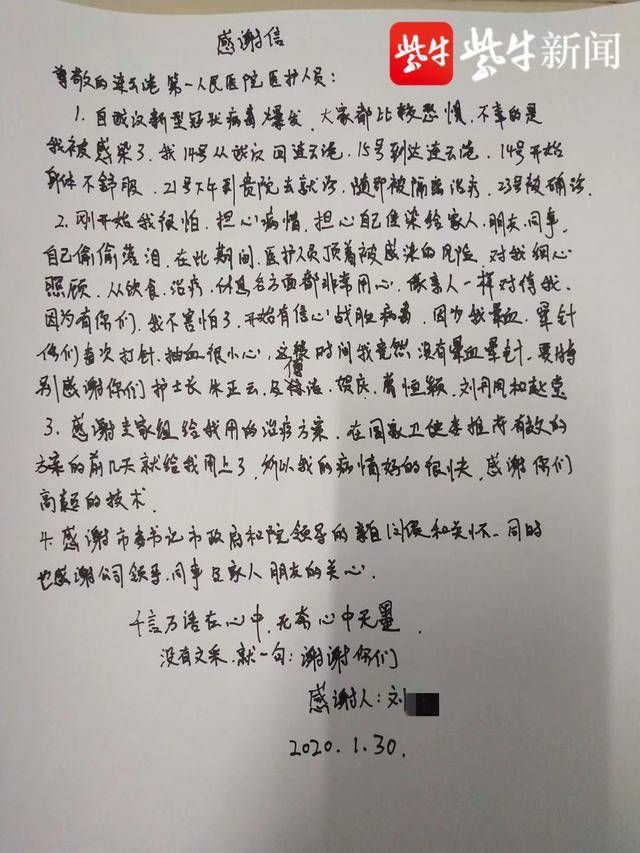 紫牛 紫牛新闻
感谢信
尊敬的连云港 第一人民医院医护人员：
1. 自武汉新型冠状病毒爆发，大家都比较恐惧，不幸的是
我被感染了，我14号从武汉回连云港，15号到达连云港，14号开始
身体不舒服，21号下午到贵院去就诊，随即被隔离治疗，23号被确诊。
2. 刚开始我很怕，担心病情，担心自己传染给家人、朋友、同事，
自己偷偷落泪，在此期间，医护人员顶着被感染的风险，对我细心
照顾，从饮食、治疗、休息各方面都非常用心，像亲人一样对待我，
因为有你们，我不害怕了，开始有信心战胜病毒，因为我晕血、晕针
你们每次打针、抽血很小心，这段时间我竟然没有晕血晕针，要特
别感谢你们护士长 朱亚云，及 贺庆，
3. 感谢专家组给我用的治疗方案，在国家卫健委推荐有效的
方案的前几天就给我用上了，所以我的病情好的很快，感谢你们
高超的技术。
4. 感谢市委书记市政府和院领导的亲自问候和关怀、同时
也感谢公司领导、同事及家人朋友的关心。
千言万语在心中，无奈心中无墨，
没有文采，就一句：谢谢你们
感谢人：刘
2020.1.30.